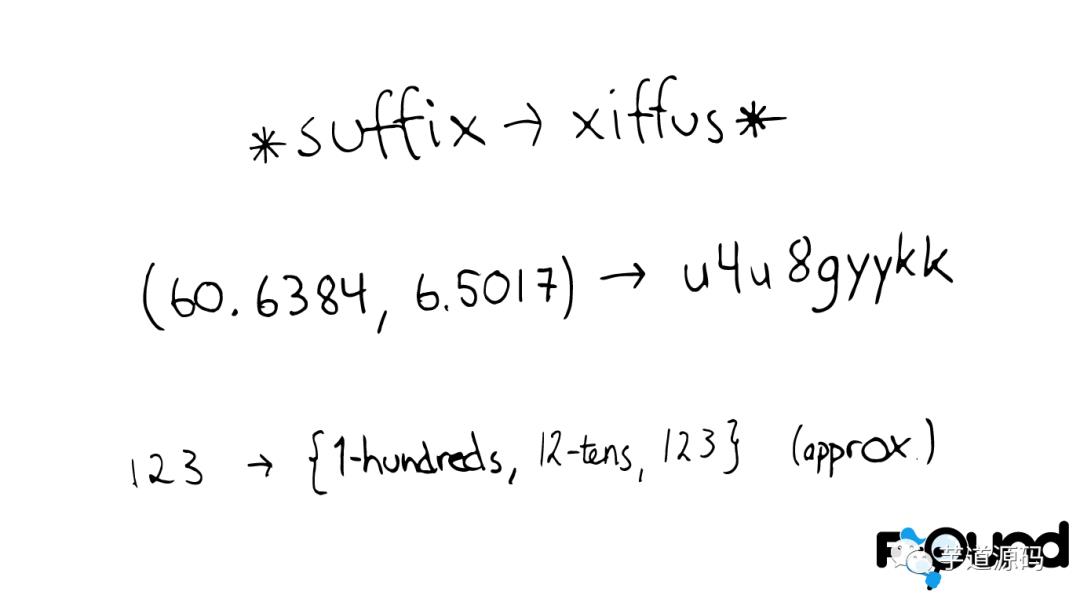 *suffix → xiffus*
(60.6384, 6.5017) → u4u8gyykk
123 → {1-hundreds, 12-tens, 123} (approx.)
Found
芋道源码